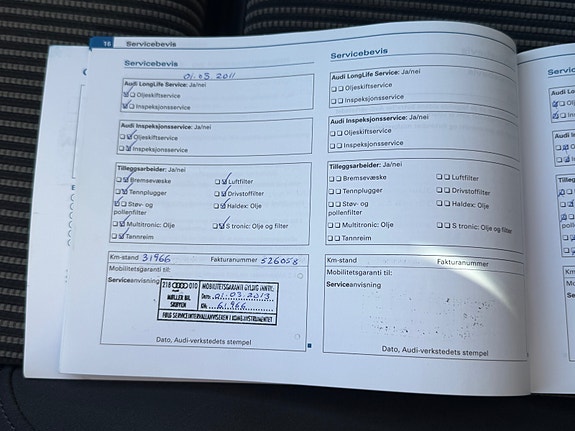 18 Servicebevis
Servicebevis
01.03.2011
Audi LongLife Service: Ja/nei
Oljeskiftservice
Inspeksjonsservice
Audi Inspeksjonsservice: Ja/nei
Oljeskiftservice
Inspeksjonsservice
Tilleggsarbeider: Ja/nei
Bremsevæske
Luftfilter
Tennplugger
Drivstoffilter
Støv- og
pollenfilter
Haldex: Olje
Multitronic: Olje
S tronic: Olje og filter
Tannreim
Km-stand 31966 Fakturanummer 526058
Mobilitetsgaranti til:
Serviceanvisning
218 Audi 010
MØLLER BIL
MOBILITETSGARANTI GYLDIG INNTIL
Dato: 01.03.2013
KM: 61.966
FØLG SERVICEINTERVALLANVISEREN I KOMBIINSTRUMENTET
Dato, Audi-verkstedets stempel
Servicebevis
Audi LongLife Service: Ja/nei
Oljeskiftservice
Inspeksjonsservice
Audi Inspeksjonsservice: Ja/nei
Oljeskiftservice
Inspeksjonsservice
Tilleggsarbeider: Ja/nei
Bremsevæske
Luftfilter
Tennplugger
Drivstoffilter
Støv- og
pollenfilter
Haldex: Olje
Multitronic: Olje
S tronic: Olje og filter
Tannreim
Km-stand Fakturanummer
Mobilitetsgaranti til:
Serviceanvisning
Dato, Audi-verkstedets stempel